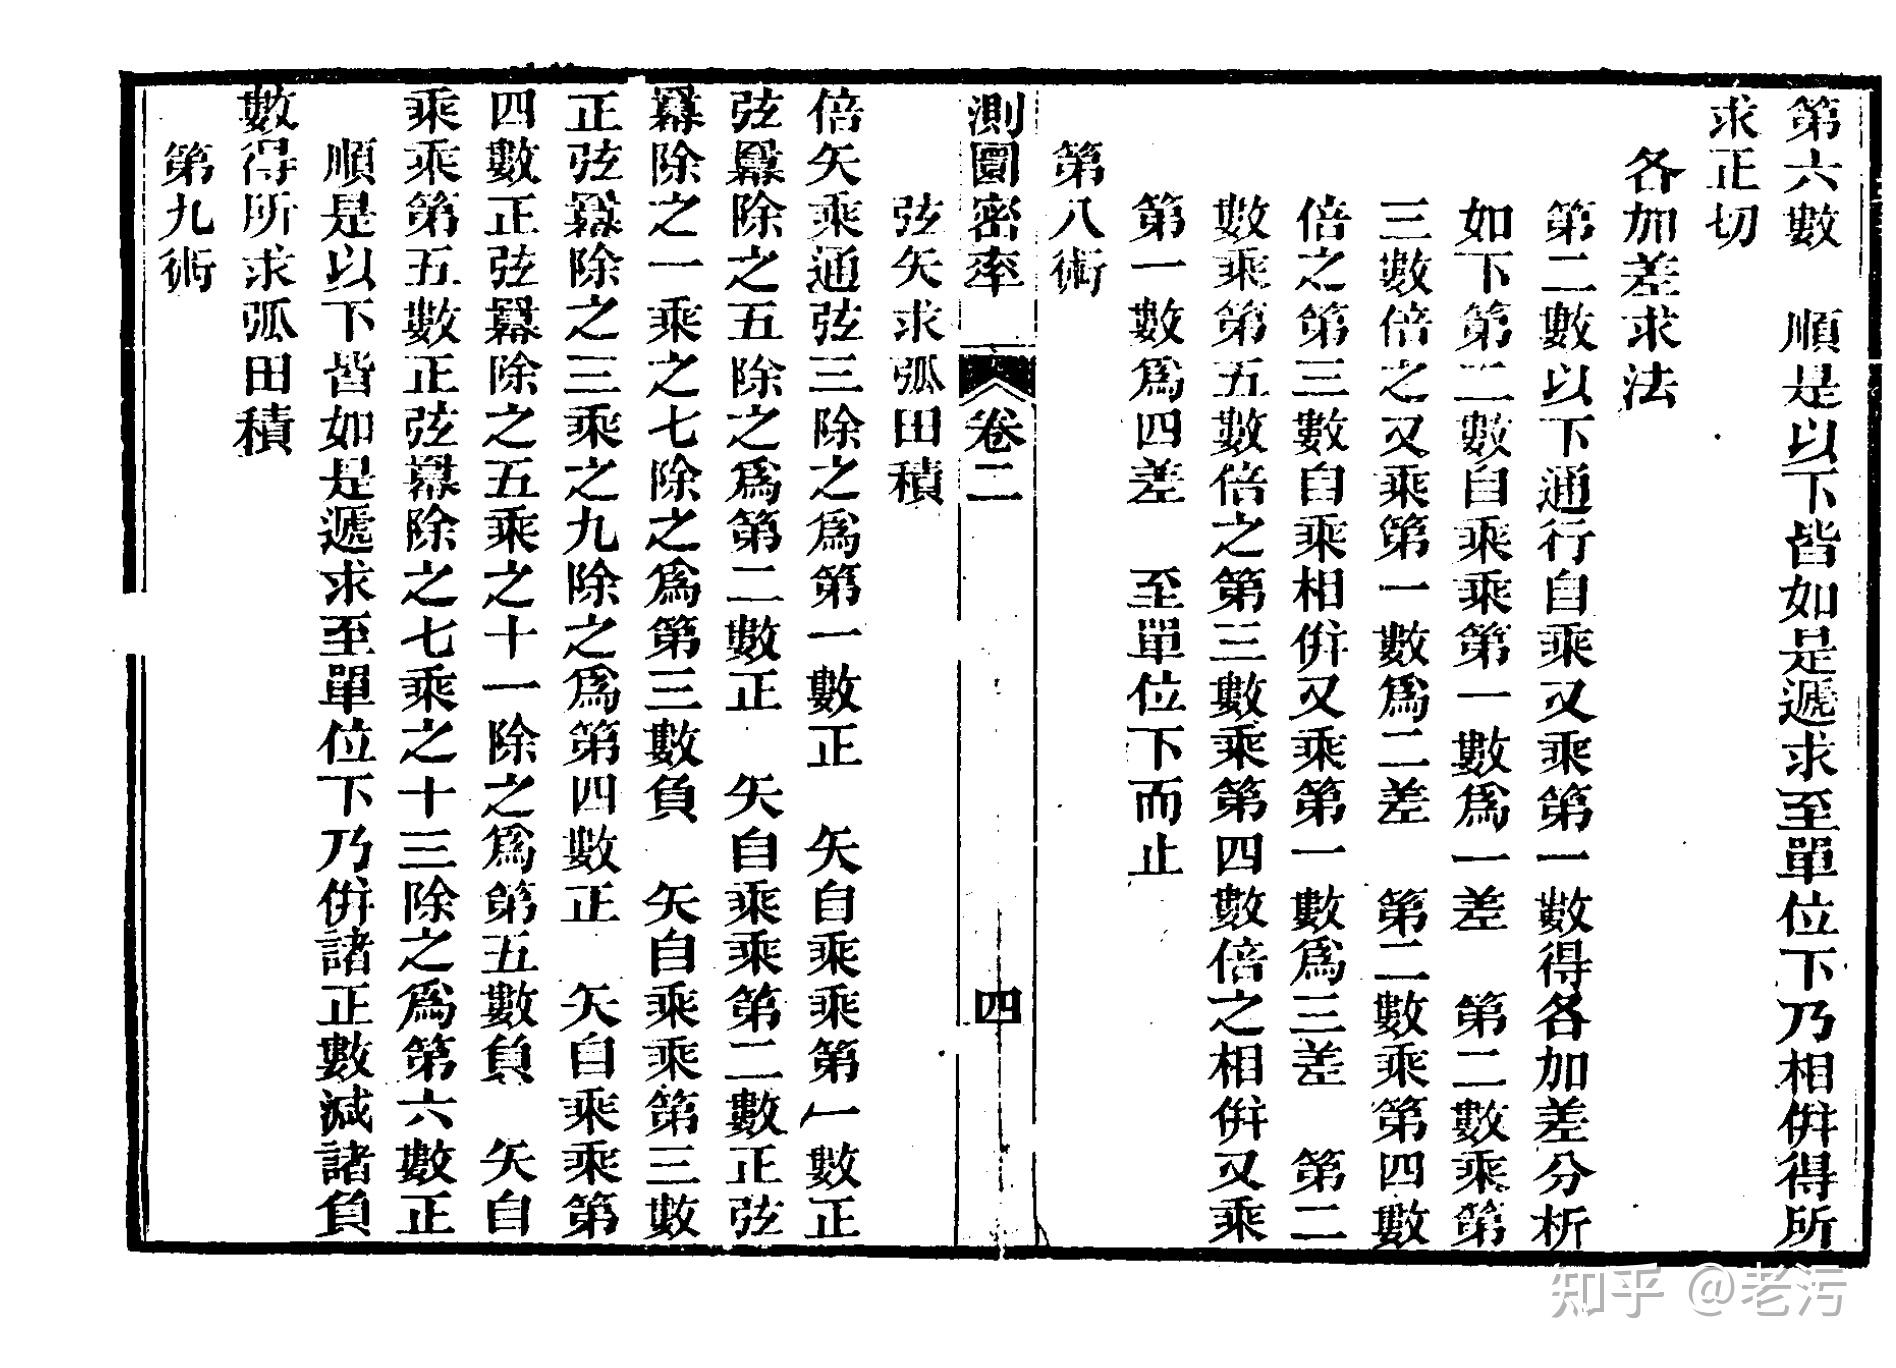 第六數　順是以下皆如是遞求至單位下乃相併得所
求正切
各加差求法
第二數以下通行自乘又乘第一數得各加差分析
如下第二數自乘乘第一數爲一差　第二數乘第
三數倍之又乘第一數爲二差　第二數乘第四數
倍之第三數自乘相併又乘第一數爲三差　第二
數乘第五數倍之第三數乘第四數倍之相併又乘
第一數爲四差　至單位下而止
第八術
測圜密率　卷二　四
弦矢求弧田積
倍矢乘通弦三除之爲第一數正　矢自乘乘第一數正
弦羃除之五除之爲第二數正　矢自乘乘第二數正弦
羃除之一乘之七除之爲第三數負　矢自乘乘第三數
正弦羃除之三乘之九除之爲第四數正　矢自乘乘第
四數正弦羃除之五乘之十一除之爲第五數負　矢自
乘乘第五數正弦羃除之七乘之十三除之爲第六數正
順是以下皆如是遞求至單位下乃併諸正數減諸負
數得所求弧田積
第九術
知乎 @老污